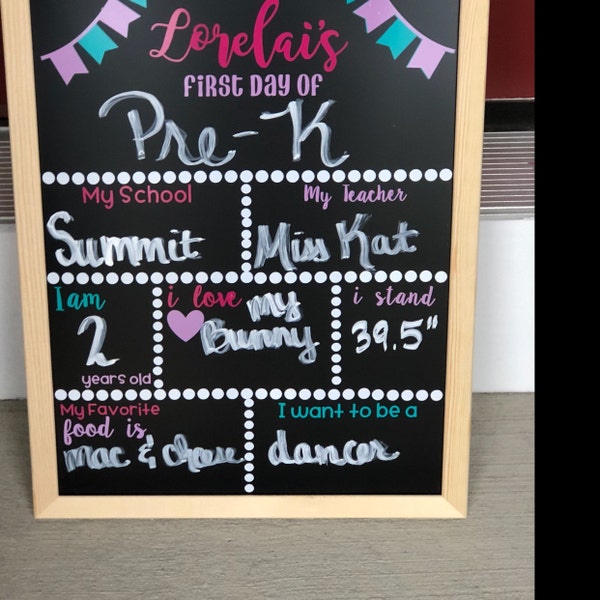 Lorelai's
FIRST DAY OF
Pre-K
My School
Summit
My Teacher
Miss Kat
I am
2
years old
i love my
Bunny
i stand
39.5"
My Favorite
food is
mac & cheese
I want to be a
dancer